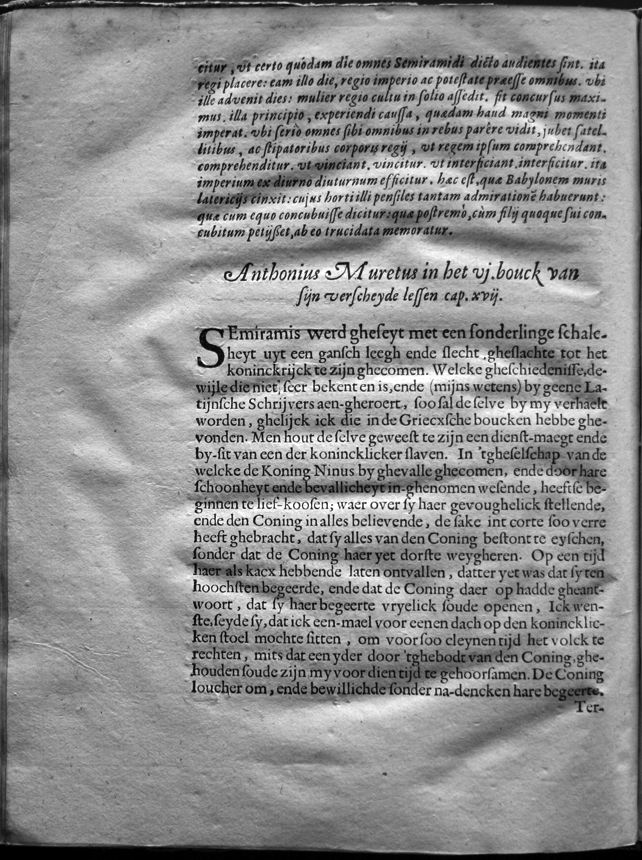 citur, vt certo quodam die omnes Semiramidi dicto audientes sint. ita
regi placere: eam illo die, regio imperio ac potestate præesse omnibus. vbi
ille advenit dies: mulier regio cultu in solio assedit. fit concursus maxi-
mus. illa principio, experiendi caussa, quædam haud magni momenti
imperat. vbi serio omnes sibi omnibus in rebus parêre vidit, jubet satel-
litibus, ac stipatoribus corporis regij, vt regem ipsum comprehendant.
comprehenditur. vt vinciant, vincitur. vt interficiant, interficitur. ita
imperium ex diurno diuturnum efficitur. hæc est, quæ Babylonem muris
latericijs cinxit: cujus horti illi pensiles tantam admirationē habuerunt:
quæ cum equo concubuisse dicitur: quæ postremò, cùm filij quoque sui con-
cubitum petijßet, ab eo trucidata memoratur.
Anthonius Muretus in het vj. bouck van
sijn verscheyde lessen cap. xvij.
SEmiramis werd gheseyt met een sonderlinge schalc-
heyt uyt een gansch leegh ende slecht, gheslachte tot het
koninckrijck te zijn ghecomen. Welcke gheschiedenisse, de-
wijle die niet seer bekent en is, ende (mijns wetens) by geene La-
tijnsche Schrijvers aen-gheroert, soo sal de selve by my verhaelt
worden, ghelijck ick die in de Griecxsche boucken hebbe ghe-
vonden. Men hout de selve geweest te zijn een dienst-maegt ende
by-sit van een der konincklicker slaven. In 'tgheselschap van de
welcke de Koning Ninus by ghevalle ghecomen, ende door hare
schoonheyt ende bevallicheyt in-ghenomen wesende, heeftse be-
ginnen te lief-koosen; waer over sy haer gevoughelick stellende,
ende den Coning in alles believende, de sake int corte soo verre
heeft ghebracht, dat sy alles van den Coning bestont te eyschen,
sonder dat de Coning haer yet dorste weygheren. Op een tijd
haer als kacx hebbende laten ontvallen, datter yet was dat sy ten
hoochsten begeerde, ende dat de Coning daer op hadde gheant-
woort, dat sy haer begeerte vryelick soude openen, Ick wen-
ste, seyde sy, dat ick een-mael voor eenen dach op den konincklic-
ken stoel mochte sitten, om voor soo cleynen tijd het volck te
rechten, mits dat een yder door 'tghebodt van den Coning, ghe-
houden soude zijn my voor dien tijd te gehoorsamen. De Coning
loucher om, ende bewillichde sonder na-dencken hare begeerte.
Ter-